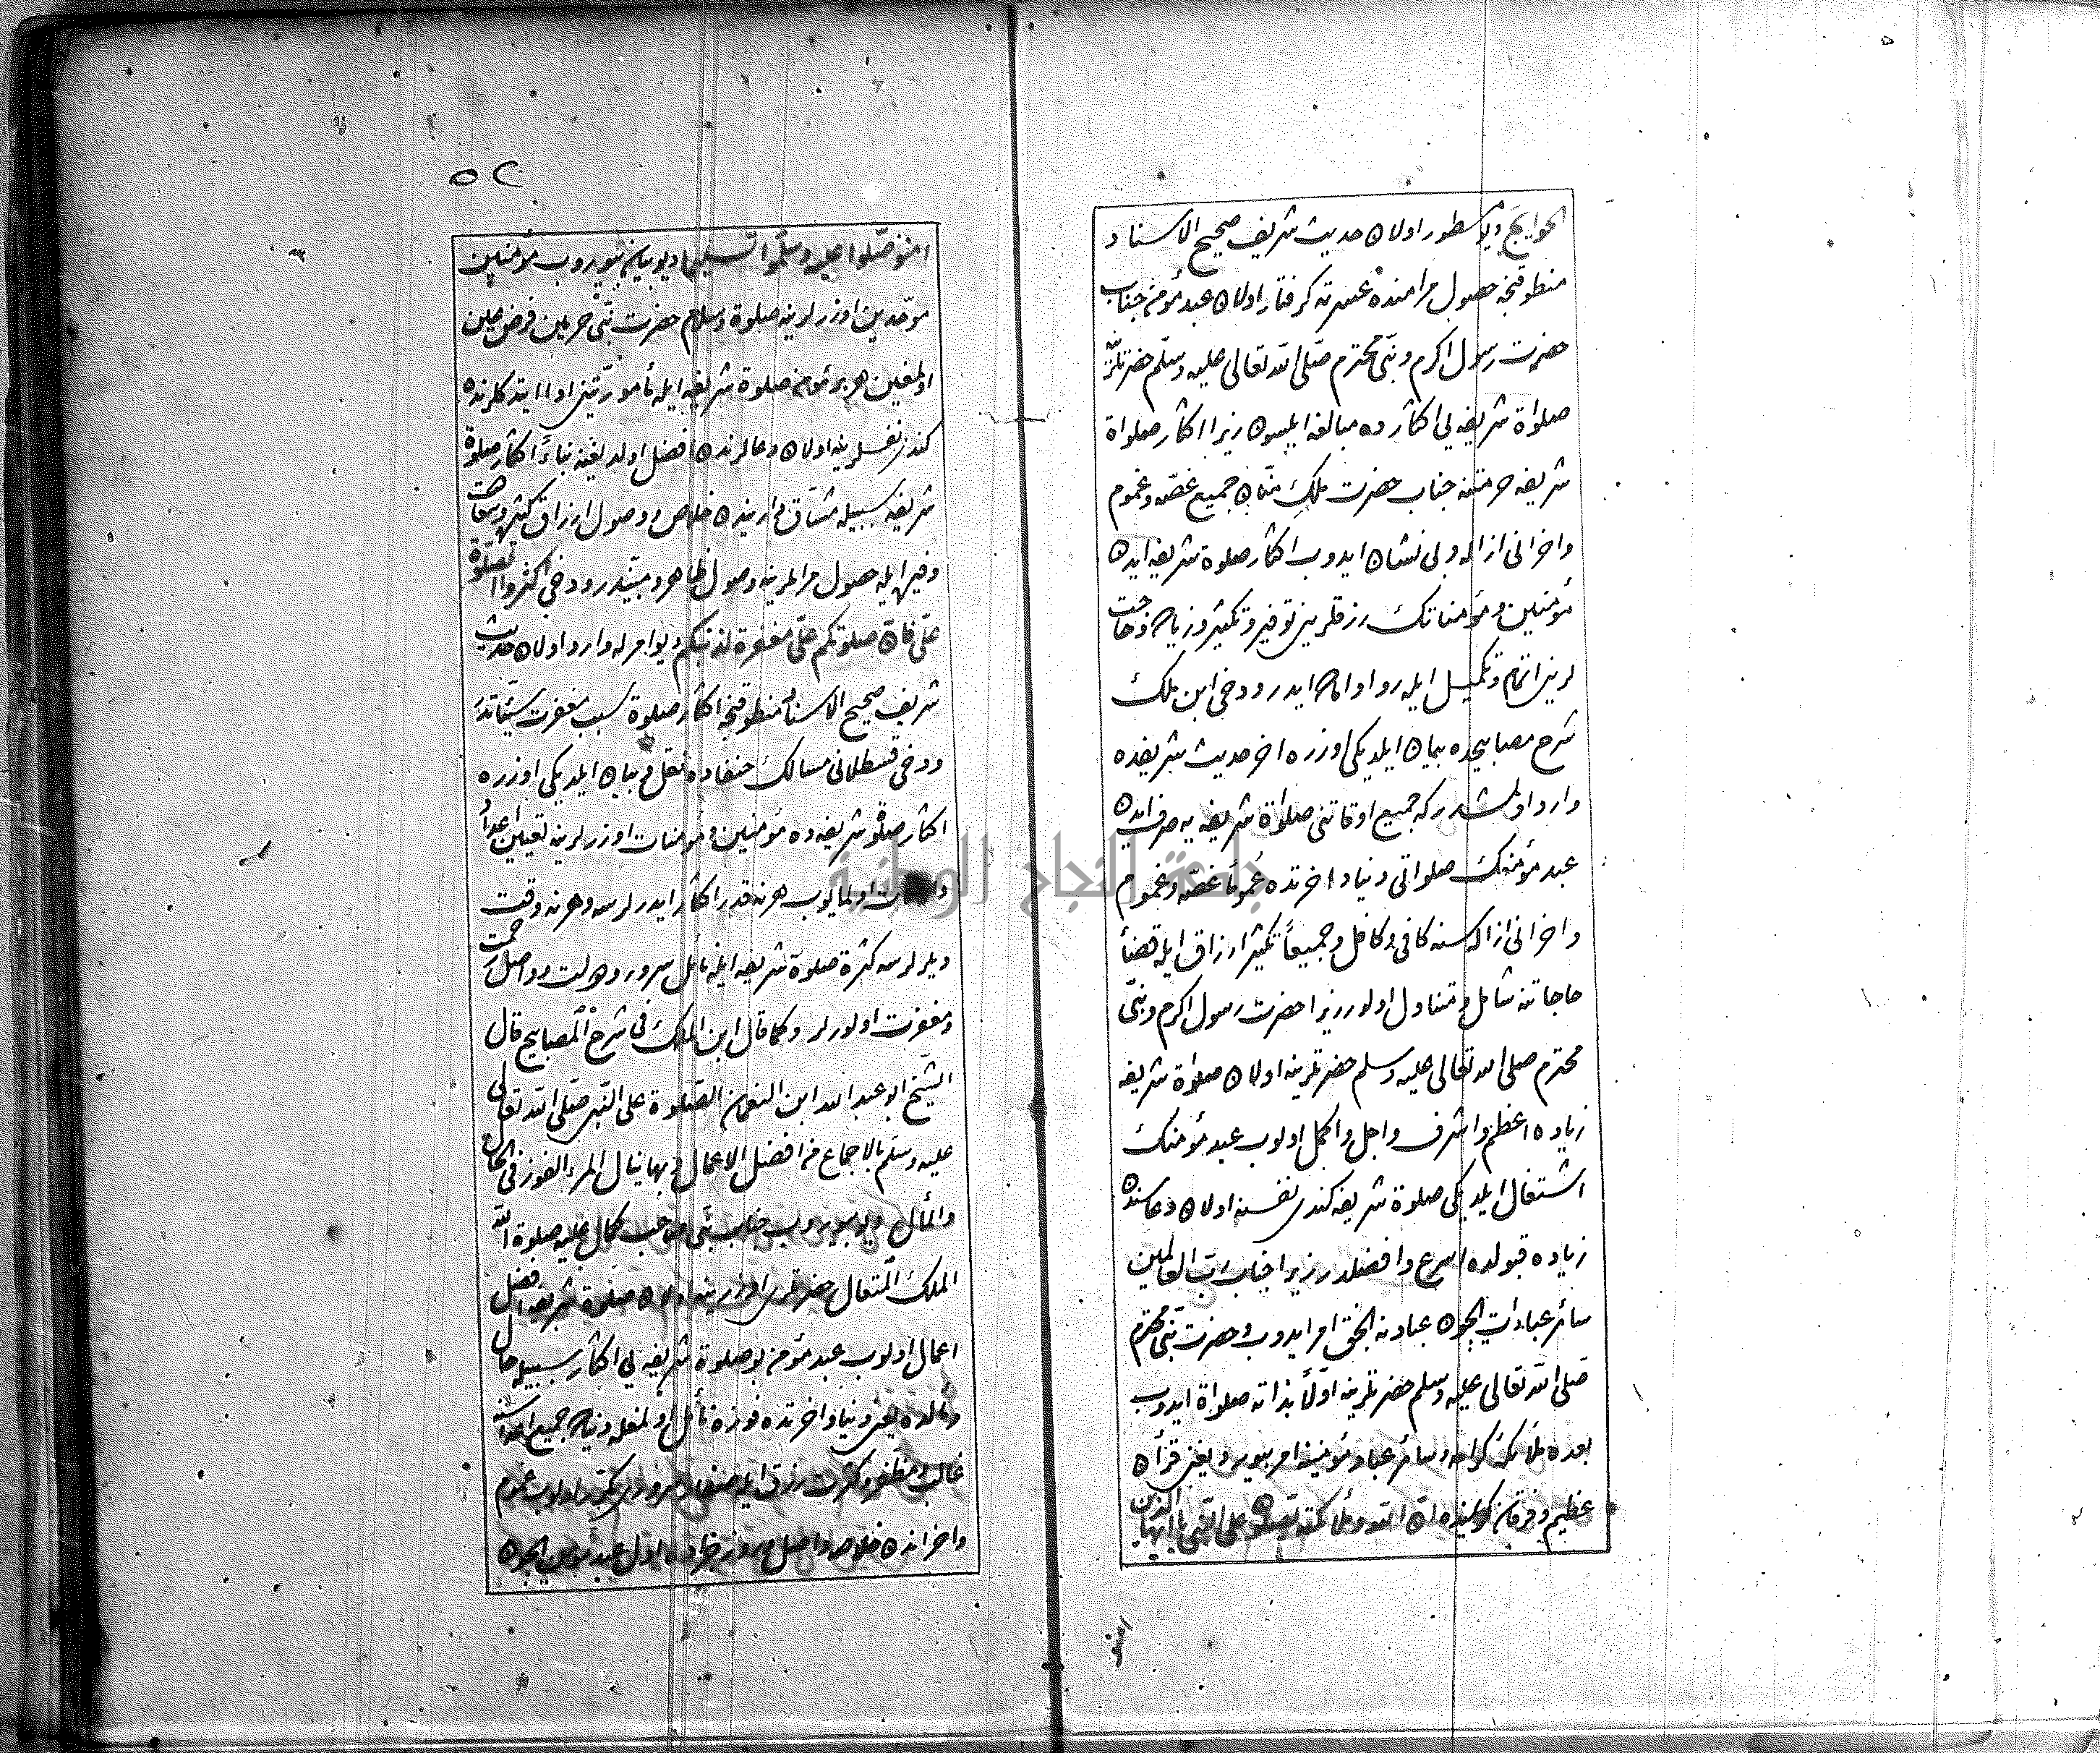 الحوايج ديو مسطور اولان حديث شريف صحيح الاسناد
منطوقنجه حصول مرامنده عسرته كرفتار اولان عبد مؤمن جناب
حضرت رسول اكرم ونبى محترم صلى الله تعالى عليه وسلم حضرتلرينه
صلواة شريفه يى اكثارده مبالغه ايلسون زيرا اكثار صلواة
شريفه حرمتنه جناب حضرت ملك منان جميع غصه وغموم
واحزانى ازاله وبى نشان ايدوب اكثار صلوة شريفه ايدن
مؤمنين ومؤمناتك رزقلرين توفير وتكثير وزياده وحاجت
لرين اتمام وتكميل ايله روا اداماه ايدر ودخى ابن ملك
شرح مصابيحده بيان ايلديكى اوزره اخر حديث شريفده
وارد اولمشدر كه جميع اوقاتنى صلواة شريفه يه صرف ايدن
عبد مؤمنك صلواتى دنيا واخرتده عموماً غصه وغموم
واحزانى ازاله سنه كافى وكافل وجميعاً تكثير ارزاق ايله قضأ
حاجاتنه شامل ومتناول اولور زيرا حضرت رسول اكرم ونبى
محترم صلى الله تعالى عليه وسلم حضرتلرينه اولان صلواة شريفه
زياده اعظم واشرف واجل واكمل اولوب عبد مؤمنك
اشتغال ايلديكى صلوة شريفه كندى نفسنه اولان دعاسندن
زياده قبولده اسرع وافضلدر زيرا جناب رب العالمين
سائر عباداتى ايچون عبادنه انجق امر ايدوب وحضرت نبى محترم
صلى الله تعالى عليه وسلم حضرتلرينه اولاً بذاته صلواة ايدوب
بعده ملائكه كرامه وسائر عباد مؤمنينه امر بيورر يعنى قرأن
عظيم وفرقان كريمنده ان الله وملائكته يصلون على النبى يا ايها الذين
امنو
٥٢
امنو صلوا عليه وسلموا تسليما ديو بيان بيوروب مؤمنين
موحدين اوزرلرينه صلوة وسلام حضرت نبى حرمين فرض عين
اولمغين هر بر مؤمن صلوة شريفه ايله مأموريتين ادا ايتدكلرنده
كندى نفسلرينه اولان دعالرندن افضل اولديغنه بناءً اكثار صلوة
شريفه سببيله مشاق داريندن خلاص ووصول ارزاق كثير وسعت
وفير ايله حصول مراملرينه وصول ظاهر ومبيندر ودخى اكثروا الصلوة
على فان صلوتكم على مغفرة لذنبكم ديو امرله وارد اولان حديث
شريف صحيح الاسناد منطوقنجه اكثار صلوة سبب مغفرت سيئاتدر
ودخى قسطلانى مسالك حنفاده نقل وبيان ايلديكى اوزره
اكثار صلوة شريفه ده مؤمنين ومؤمنات اوزرلرينه تعيين اعداد
اولمايوب هر نه قدر اكثار ايدرلرسه وهر نه وقت
ديلرلرسه كثرة صلوة شريفه ايله نائل سرور ودولت وواصل رحمت
ومغفرت اولورلر وكما قال ابن الملك فى شرح المصابيح قال
الشيخ ابو عبد الله ابن النعمان الصلوة على النبى صلى الله تعالى
عليه وسلم بالاجماع من افضل الاعمال وبها ينال المرء الفوز فى الحال
والمأل ديو بيوروب جناب نبى صاحب كمال عليه صلوة الله
الملك المتعال حضرتلرى اوزرينه اولان صلوة شريفه افضل
اعمال اولوب عبد مؤمن بو صلوة شريفه يى اكثار سببيله حال
ومألده يعنى دنيا واخرتده فوزه نائل اولمغله دنياده جميع اعداسنه
غالب ومظفر وكثرت رزق ايله اولوب غموم
واحزاندن خلاص واصل اول عبد مؤمن ايچون